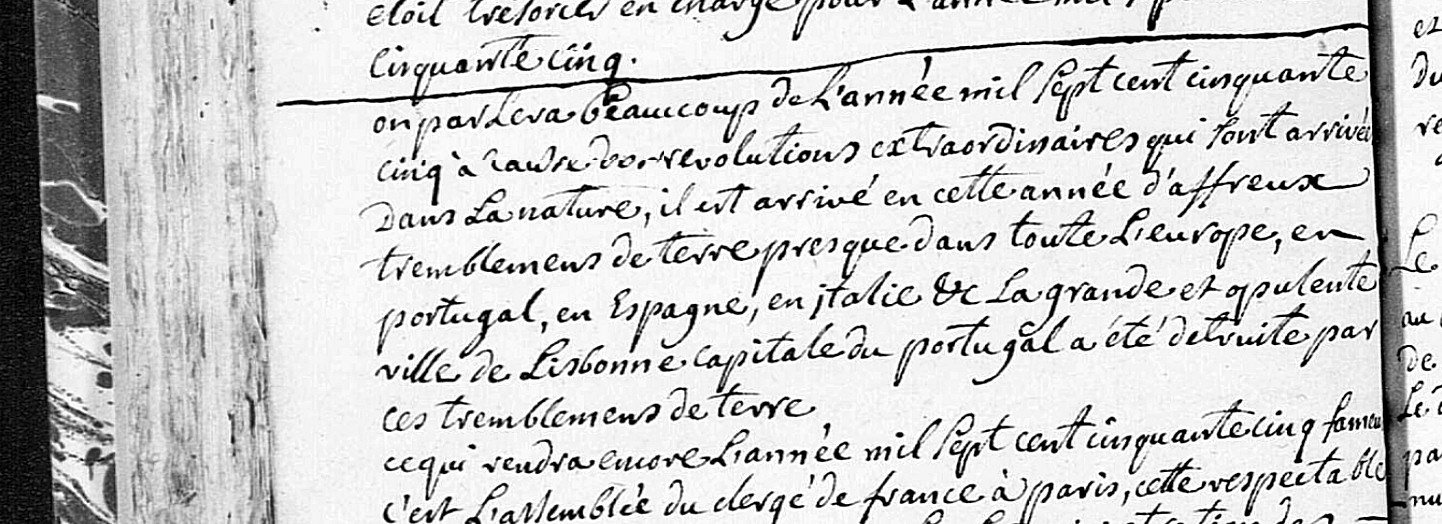 etoit trésorier en charge pour L'année mil
cinquante cinq.
on parlera beaucoups de L'année mil sept cent cinquante
cinq à cause des revolutions extraordinaires qui sont arrivées
dans La nature, il est arrivé en cette année d'affreux
tremblemens de terre presque dans toute L'europe, en
portugal, en Espagne, en jtalie &c La grande et opulente
ville de Lisbonne capitale du portugal a été detruite par
ces tremblemens de terre
ce qui rendra encore L'année mil sept cent cinquante cinq fameu
c'est L'assemblée du clergé de france à paris, cette respectable
et
du
re
Le
au
de
Le
pa
nu